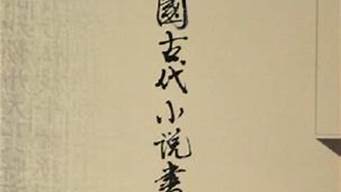 國古代小说書